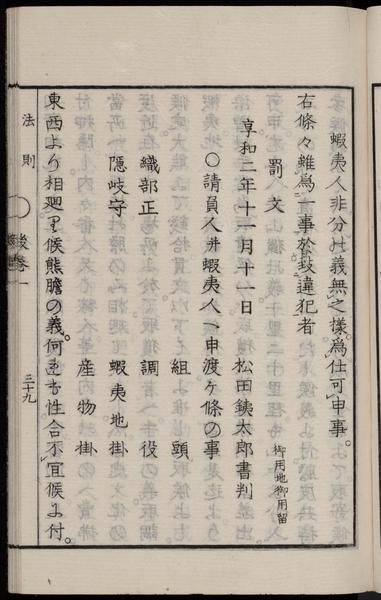 蝦夷人非分の義無之樣為仕可申事。
右條々雖為一事於致違犯者
罰文
享和二年十一月十一日 松田銕太郎書判
御用地御用留
〇請負人并蝦夷人一申渡ヶ條の事
組頭
織部正 調役
隠岐守 蝦夷地掛
産物掛
東西より相廻り候熊膽の義。何れも性合不宜候よ付。
法則 後巻一 三十九